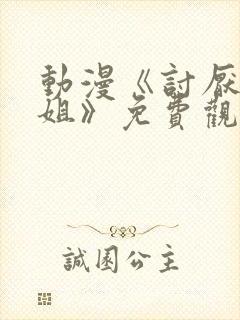 動漫《討厭
姐》免費觀
誠園公主